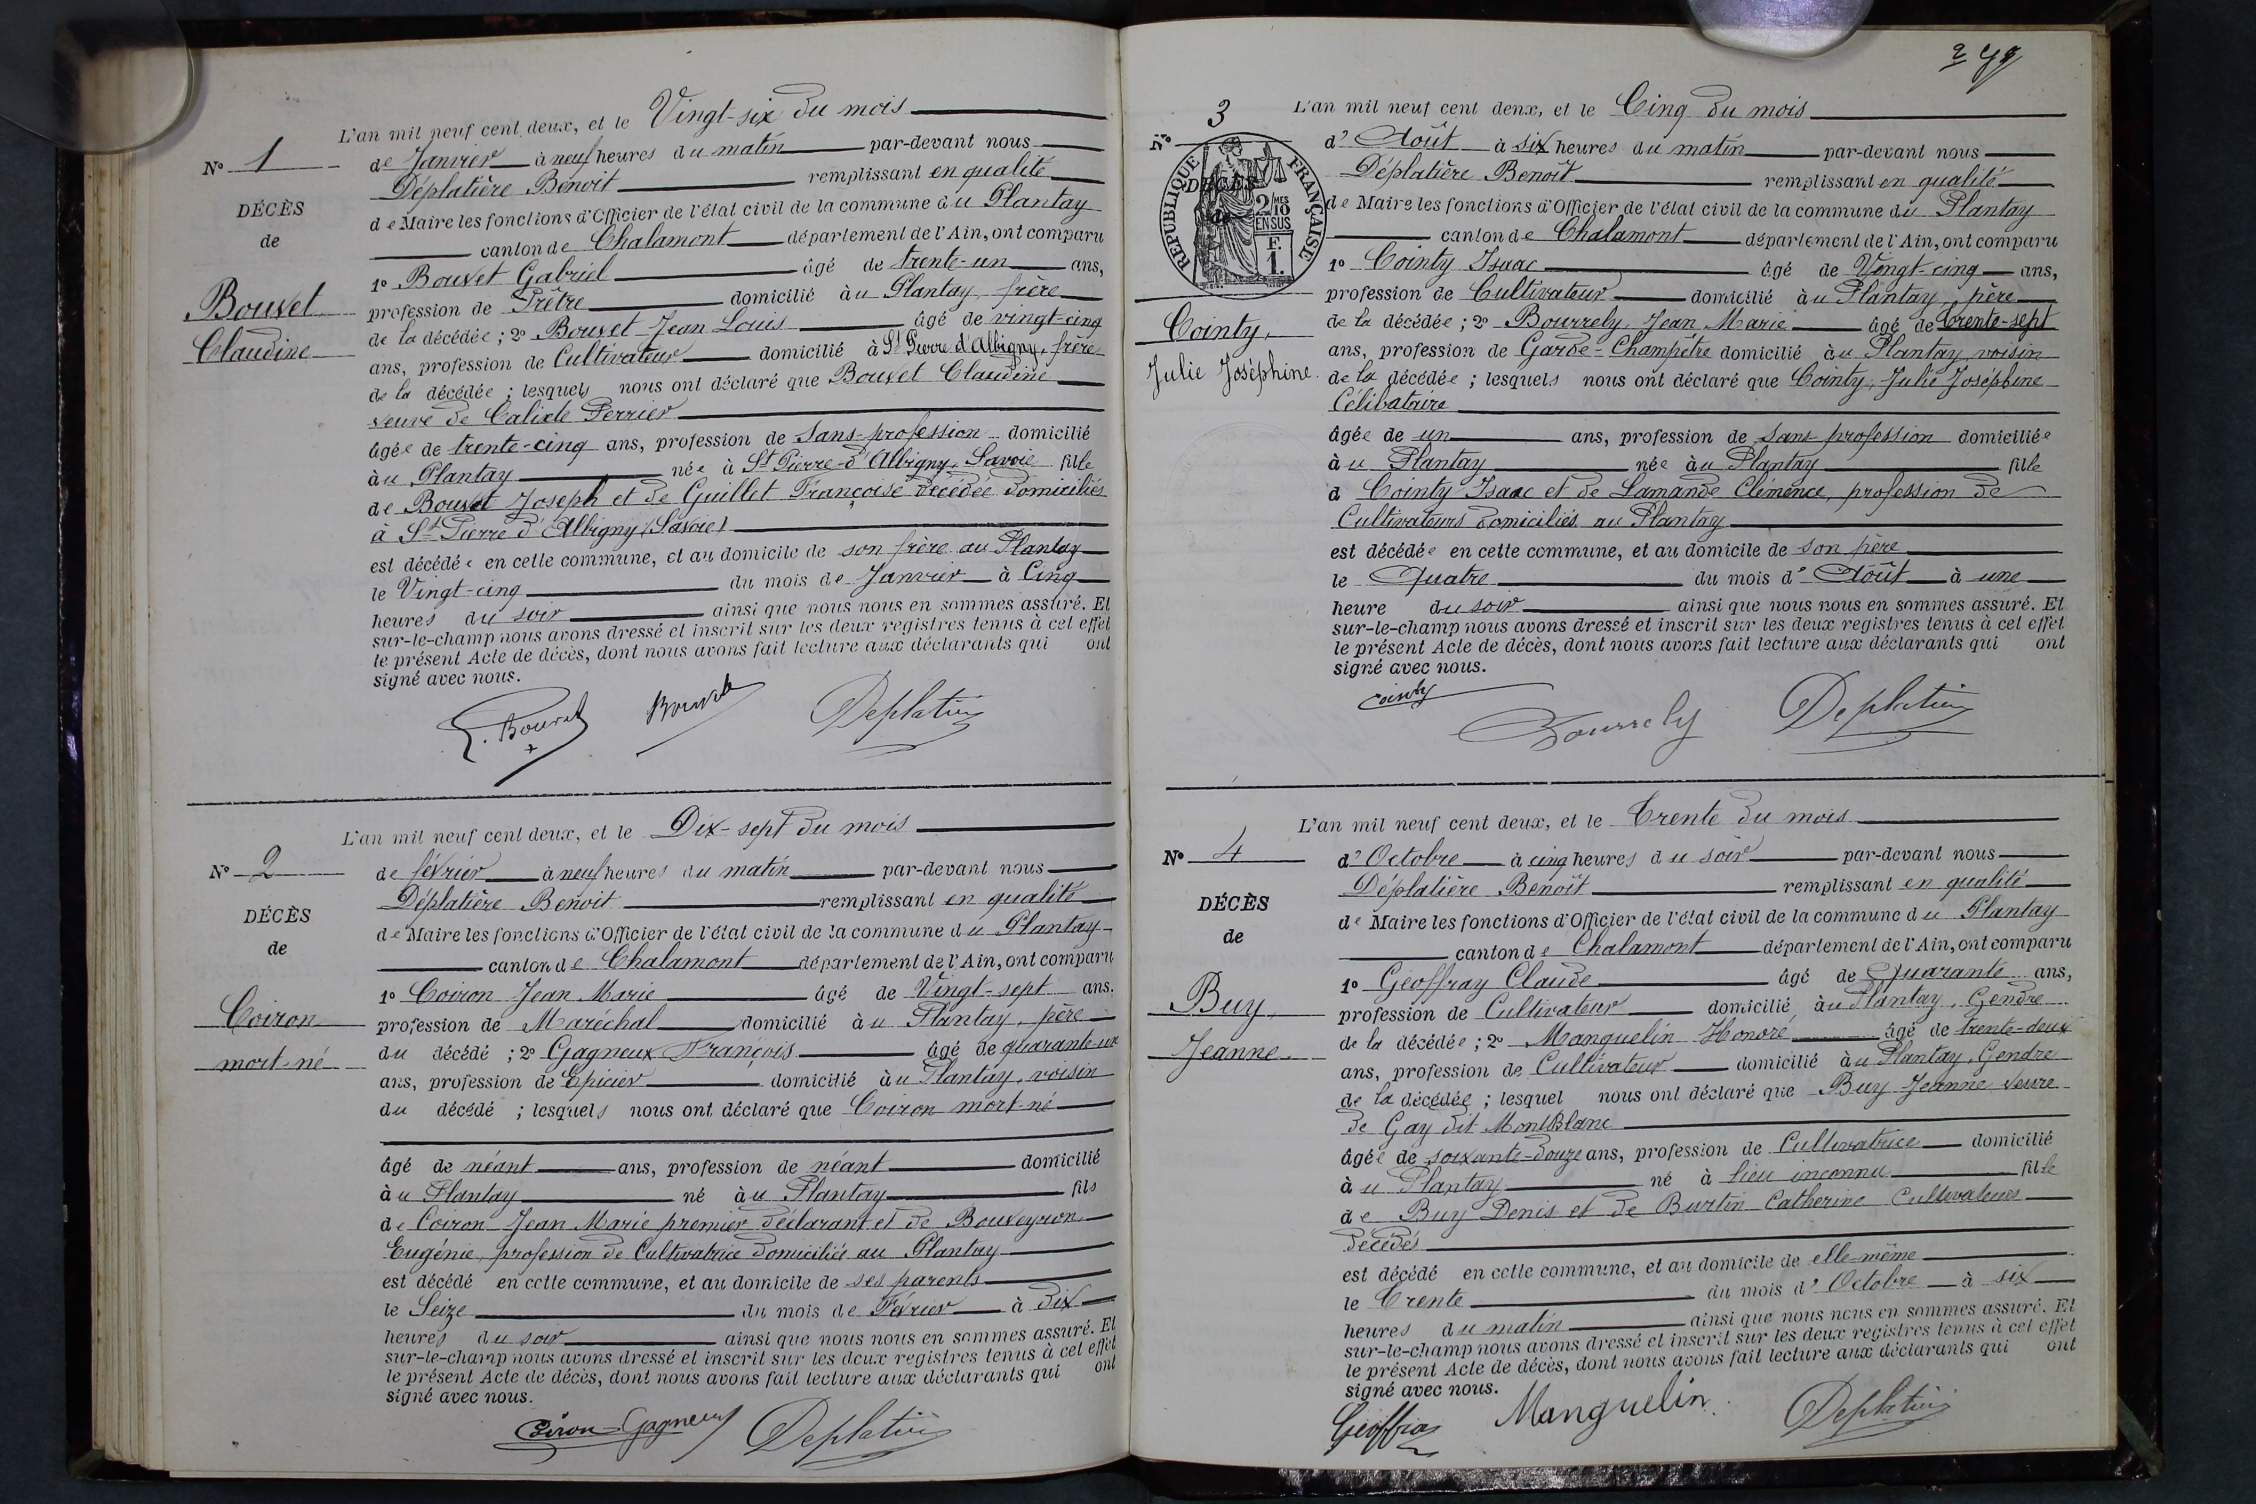 L'an mil neuf cent deux, et le Vingt-six du mois
No 1
de Janvier à neuf heures du matin par-devant nous
Déplatière Benoit remplissant en qualité
DÉCÈS
de Maire les fonctions d'Officier de l'état civil de la commune du Plantay
de
canton de Chalamont département de l'Ain, ont comparu
1o Bouvet Gabriel âgé de trente-un ans,
Bouvet
profession de Prêtre domicilié au Plantay, frère
Claudine
de la décédée ; 2o Bouvet Jean Louis âgé de vingt-cinq
ans, profession de Cultivateur domicilié à St Pierre d'Albigny, frère
de la décédée ; lesquels nous ont déclaré que Bouvet Claudine
veuve de Calixte Perrier
âgée de trente-cinq ans, profession de Sans-profession domicilié
au Plantay née à St Pierre-d'Albigny, Savoie fille
de Bouvet Joseph et de Guillet Françoise décédée domiciliés
à St Pierre d'Albigny (Savoie)
est décédée en cette commune, et au domicile de son frère au Plantay
le Vingt-cinq du mois de Janvier à Cinq
heures du soir ainsi que nous nous en sommes assuré. Et
sur-le-champ nous avons dressé et inscrit sur les deux registres tenus à cet effet
le présent Acte de décès, dont nous avons fait lecture aux déclarants qui ont
signé avec nous.
G. Bouvet Bouvet Deplatière
L'an mil neuf cent deux, et le Dix-sept du mois
No 2
de février à neuf heures du matin par-devant nous
Déplatière Benoit remplissant en qualité
DÉCÈS
de Maire les fonctions d'Officier de l'état civil de la commune du Plantay
de
canton de Chalamont département de l'Ain, ont comparu
1o Coiron Jean Marie âgé de Vingt-sept ans.
Coiron
profession de Maréchal domicilié au Plantay, père
mort-né
du décédé ; 2o Gagneux François âgé de quarante-un
ans, profession de Epicier domicilié au Plantay, voisin
du décédé ; lesquels nous ont déclaré que Coiron mort-né
âgé de néant ans, profession de néant domicilié
au Plantay né au Plantay fils
de Coiron Jean Marie premier déclarant et de Bouveyron
Eugénie, profession de Cultivatrice domiciliés au Plantay
est décédé en cette commune, et au domicile de ses parents
le Seize du mois de Février à dix
heures du soir ainsi que nous nous en sommes assuré. Et
sur-le-champ nous avons dressé et inscrit sur les deux registres tenus à cet effet
le présent Acte de décès, dont nous avons fait lecture aux déclarants qui ont
signé avec nous.
Coiron Gagneux Deplatière
L'an mil neuf cent deux, et le Cinq du mois
No 3
d'Août à six heures du matin par-devant nous
Déplatière Benoit remplissant en qualité
RÉPUBLIQUE FRANÇAISE
DÉCÈS
de
2/10 MES
EN SUS
F.
1.
de Maire les fonctions d'Officier de l'état civil de la commune du Plantay
canton de Chalamont département de l'Ain, ont comparu
1o Cointy Isaac âgé de Vingt-cinq ans,
profession de Cultivateur domicilié au Plantay, père
Cointy,
de la décédée ; 2o Bourrely, Jean Marie âgé de trente-sept
ans, profession de Garde-Champêtre domicilié au Plantay, voisin
Julie Joséphine
de la décédée ; lesquels nous ont déclaré que Cointy, Julie Joséphine
Célibataire
âgée de un ans, profession de Sans profession domiciliée
au Plantay née au Plantay fille
d Cointy Isaac et de Lamande Clémence, profession de
Cultivateurs domiciliés au Plantay
est décédée en cette commune, et au domicile de son père
le Quatre du mois d'Août à une
heure du soir ainsi que nous nous en sommes assuré. Et
sur-le-champ nous avons dressé et inscrit sur les deux registres tenus à cet effet
le présent Acte de décès, dont nous avons fait lecture aux déclarants qui ont
signé avec nous.
Cointy Bourrely Deplatière
L'an mil neuf cent deux, et le Trente du mois
No 4
d'Octobre à cinq heures du soir par-devant nous
Déplatière Benoît remplissant en qualité
DÉCÈS
de Maire les fonctions d'Officier de l'état civil de la commune du Plantay
de
canton de Chalamont département de l'Ain, ont comparu
1o Geoffray Claude âgé de Quarante ans,
Buy,
profession de Cultivateur domicilié au Plantay, Gendre
Jeanne
de la décédée ; 2o Manguelin Honoré âgé de trente-deux
ans, profession de Cultivateur domicilié au Plantay, Gendre
de la décédée ; lesquel nous ont déclaré que Buy Jeanne veuve
de Gay dit MontBlanc
âgée de soixante-douze ans, profession de Cultivatrice domicilié
au Plantay né à lieu inconnu fille
de Buy Denis et de Burtin Catherine Cultivateurs
décédés
est décédé en cette commune, et au domicile de elle-même
le Trente du mois d'Octobre à six
heures du matin ainsi que nous nous en sommes assuré. Et
sur-le-champ nous avons dressé et inscrit sur les deux registres tenus à cet effet
le présent Acte de décès, dont nous avons fait lecture aux déclarants qui ont
signé avec nous.
Geoffray Manguelin Deplatière